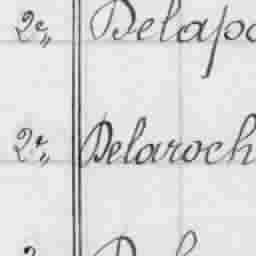 2e,, Delapo
2e,, Delaroch